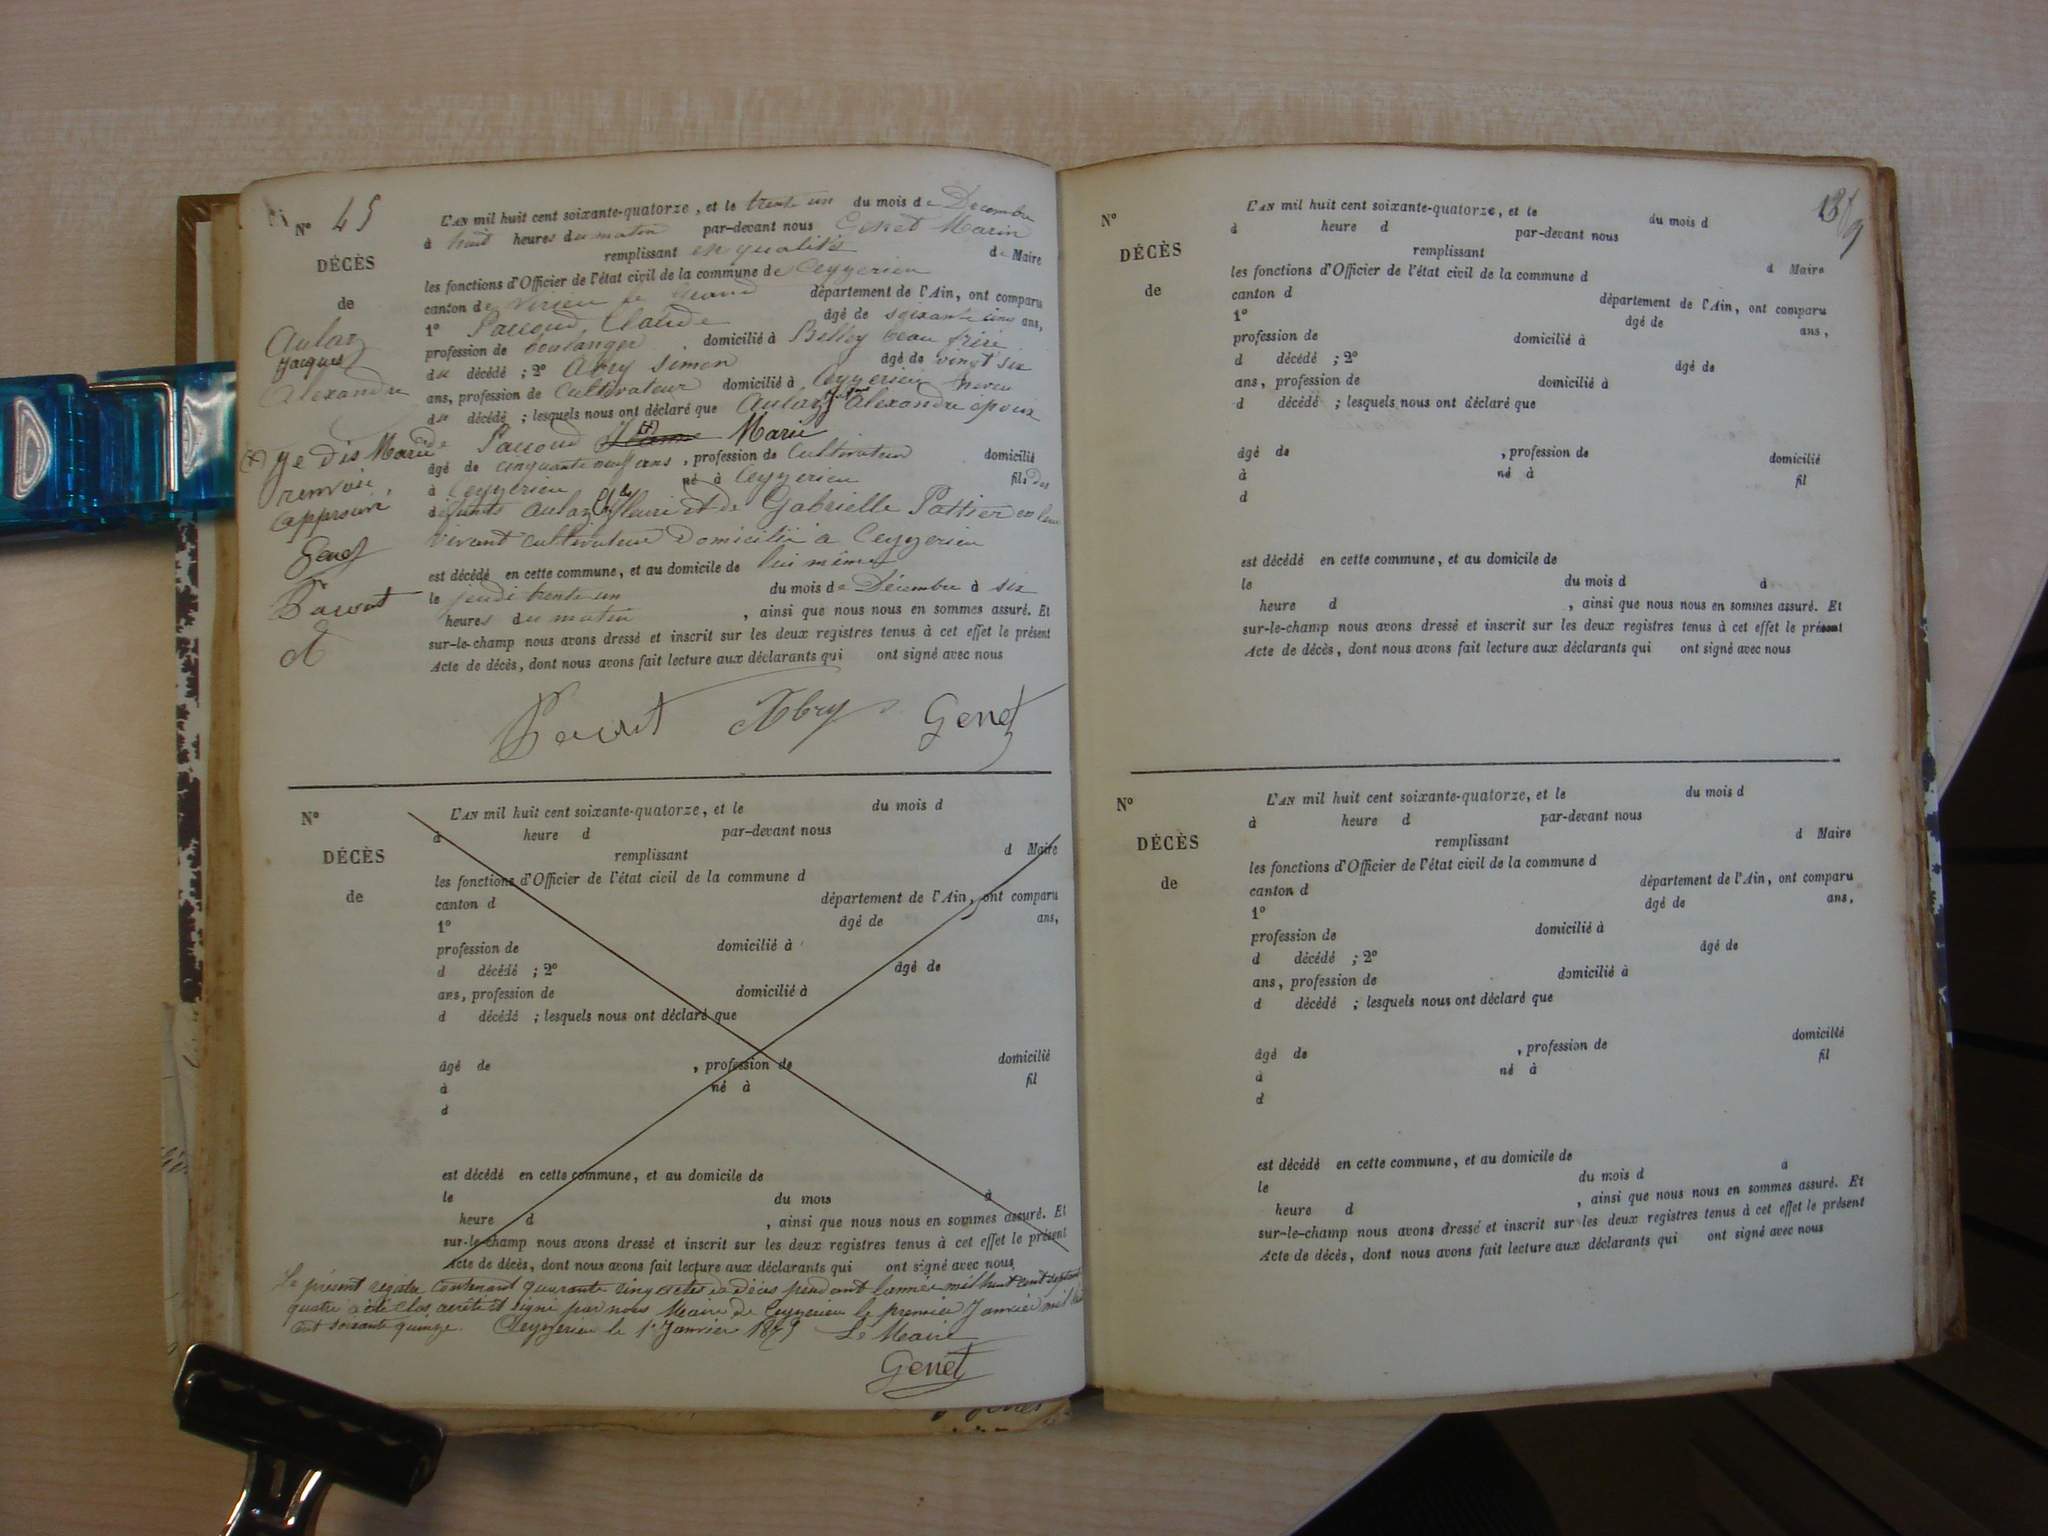 N° 45
DÉCÈS
de
Aulaz
Jacques
Alexandre
je dis Marie
renvoi
approuvé
Genet
L'AN mil huit cent soixante-quatorze, et le trente un du mois de Décembre
à huit heures du matin par-devant nous Genet Marin
remplissant en qualité de Maire
les fonctions d'Officier de l'état civil de la commune de Ceyzerieu
canton de Virieu le Grand département de l'Ain, ont comparu
1° Paccoud, Claude âgé de soixante cinq ans,
profession de boulanger domicilié à Belley beau frère
du décédé ; 2° Abry Simon âgé de vingt six
ans, profession de cultivateur domicilié à Ceyzerieu neveu
du décédé ; lesquels nous ont déclaré que Aulaz Alexandre époux
de Paccoud Marie
âgé de cinquante neuf ans, profession de Cultivateur domicilié
à Ceyzerieu né à Ceyzerieu fils des
défunts Aulaz et de Gabrielle Pottier en leur
vivant cultivateur domicilié à Ceyzerieu
est décédé en cette commune, et au domicile de lui même
le jeudi trente un du mois de Décembre à six
heures du matin, ainsi que nous nous en sommes assuré. Et
sur-le-champ nous avons dressé et inscrit sur les deux registres tenus à cet effet le présent
Acte de décès, dont nous avons fait lecture aux déclarants qui ont signé avec nous
Abry Genet
N°
DÉCÈS
de
L'AN mil huit cent soixante-quatorze, et le du mois d
à heure d par-devant nous
remplissant d Maire
les fonctions d'Officier de l'état civil de la commune d
canton d département de l'Ain, ont comparu
1° âgé de ans,
profession de domicilié à
d décédé ; 2° âgé de
ans, profession de domicilié à
d décédé ; lesquels nous ont déclaré que
âgé de , profession de domicilié
à né à fil
d
est décédé en cette commune, et au domicile de
le du mois à
heure d , ainsi que nous nous en sommes assuré. Et
sur-le-champ nous avons dressé et inscrit sur les deux registres tenus à cet effet le présent
Acte de décès, dont nous avons fait lecture aux déclarants qui ont signé avec nous
Le présent registre contenant quarante cinq actes de décès pendant l'année mil huit cent septante
quatre a été clos, arrêté et signé par nous Maire de Ceyzerieu le premier Janvier mil huit
cent soixante quinze. Ceyzerieu le 1er Janvier 1875 Le Maire
Genet
N°
DÉCÈS
de
L'AN mil huit cent soixante-quatorze, et le du mois d
à heure d par-devant nous
remplissant d Maire
les fonctions d'Officier de l'état civil de la commune d
canton d département de l'Ain, ont comparu
1° âgé de ans,
profession de domicilié à
d décédé ; 2° âgé de
ans, profession de domicilié à
d décédé ; lesquels nous ont déclaré que
âgé de , profession de domicilié
à né à fil
d
est décédé en cette commune, et au domicile de
le du mois d à
heure d , ainsi que nous nous en sommes assuré. Et
sur-le-champ nous avons dressé et inscrit sur les deux registres tenus à cet effet le présent
Acte de décès, dont nous avons fait lecture aux déclarants qui ont signé avec nous
N°
DÉCÈS
de
L'AN mil huit cent soixante-quatorze, et le du mois d
à heure d par-devant nous
remplissant d Maire
les fonctions d'Officier de l'état civil de la commune d
canton d département de l'Ain, ont comparu
1° âgé de ans,
profession de domicilié à
d décédé ; 2° âgé de
ans, profession de domicilié à
d décédé ; lesquels nous ont déclaré que
âgé de , profession de domicilié
à né à fil
d
est décédé en cette commune, et au domicile de
le du mois d à
heure d , ainsi que nous nous en sommes assuré. Et
sur-le-champ nous avons dressé et inscrit sur les deux registres tenus à cet effet le présent
Acte de décès, dont nous avons fait lecture aux déclarants qui ont signé avec nous